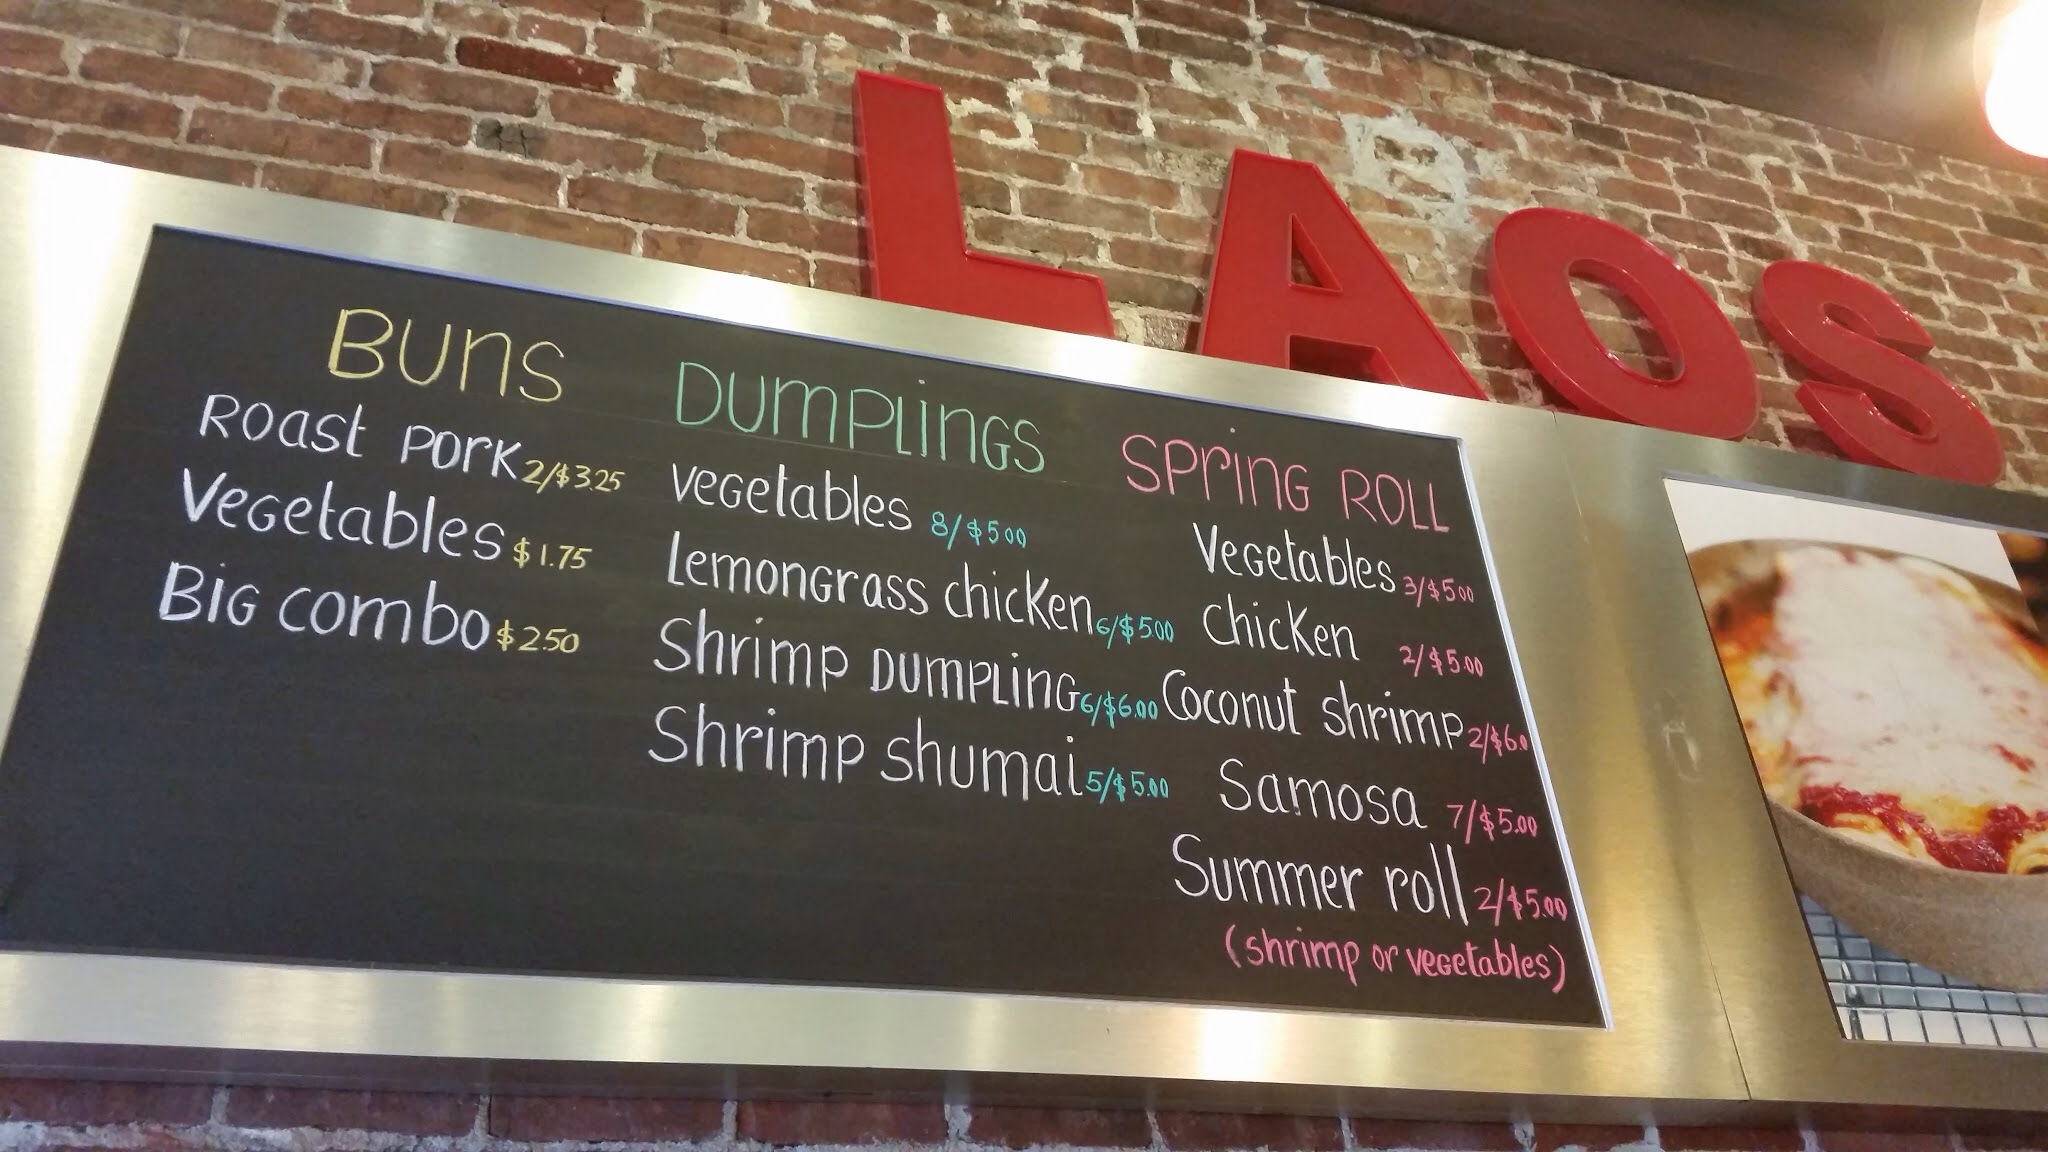 LAOS
BUNS
Roast Pork 2/$3.25
Vegetables $1.75
Big combo $2.50
DUMPLINGS
Vegetables 8/$5.00
Lemongrass chicken 6/$5.00
Shrimp DUMPLING 6/$6.00
Shrimp shumai 5/$5.00
SPRING ROLL
Vegetables 3/$5.00
Chicken 2/$5.00
Coconut shrimp 2/$6.0
Samosa 7/$5.00
Summer roll 2/$5.00
(shrimp or vegetables)